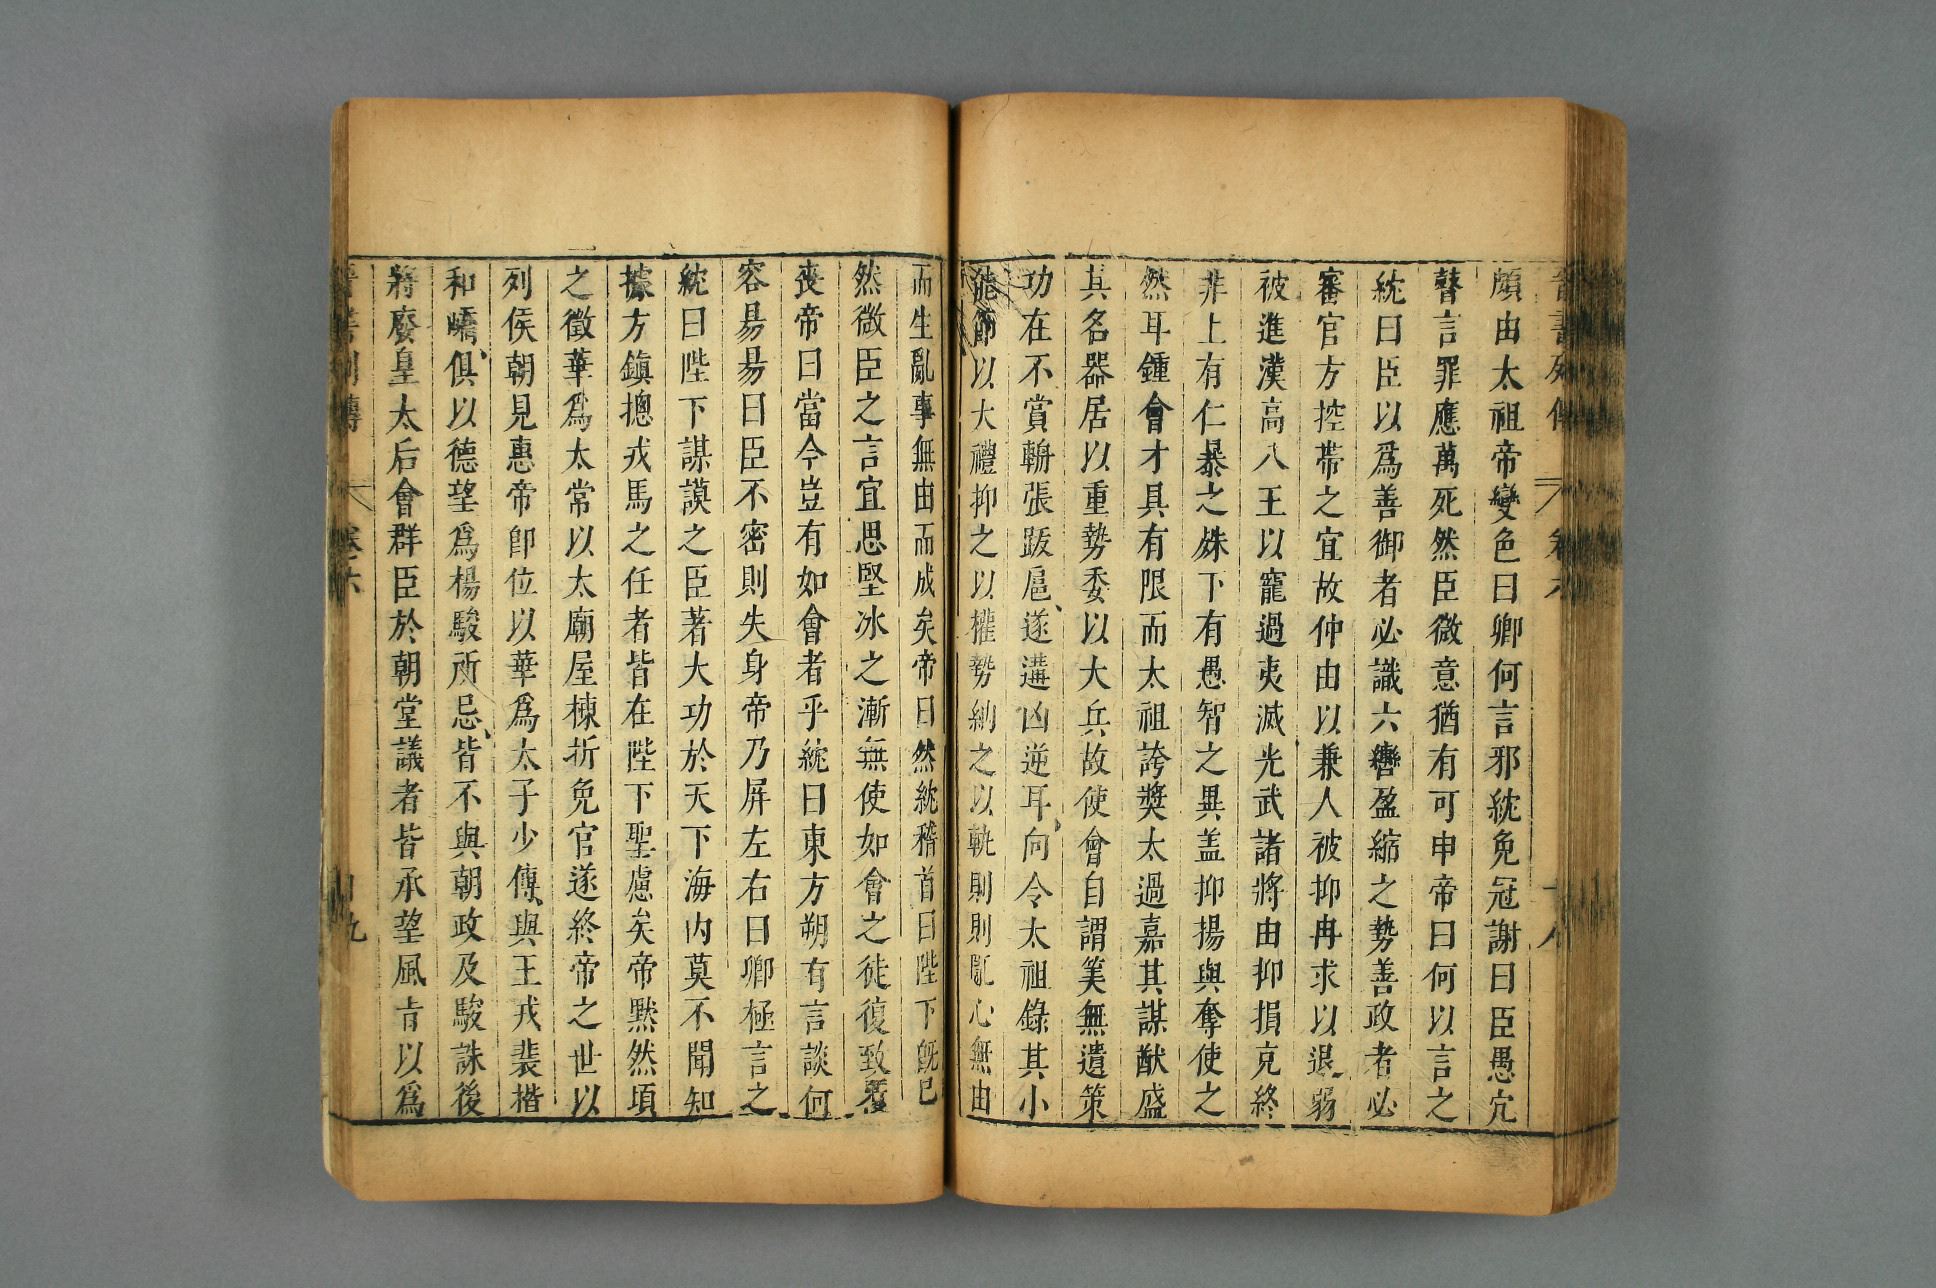 晉書列傳 卷六 十八
頗由太祖帝變色曰卿何言邪紞免冠謝曰臣愚宂
瞽言罪應萬死然臣微意猶有可申帝曰何以言之
紞曰臣以爲善御者必識六轡盈縮之勢善政者必
審官方控帶之宜故仲由以兼人被抑冉求以退弱
被進漢高八王以寵過夷滅光武諸將由抑損克終
非上有仁暴之殊下有愚智之異盖抑揚與奪使之
然耳鍾會才具有限而太祖誇奬太過嘉其謀猷盛
其名器居以重勢委以大兵故使會自謂筭無遺策
功在不賞輈張跋扈遂遘凶逆耳向令太祖錄其小
能節以大禮抑之以權勢納之以軌則則亂心無由
而生亂事無由而成矣帝曰然紞稽首曰陛下旣已
然微臣之言宜思堅冰之漸無使如會之徒復致覆
丧帝曰當今豈有如會者乎紞曰東方朔有言談何
容易易曰臣不密則失身帝乃屏左右曰卿極言之
紞曰陛下謀謨之臣著大功於天下海内莫不聞知
據方鎮摠戎馬之任者皆在陛下聖慮矣帝黙然頃
之徵華爲太常以太廟屋棟折免官遂終帝之世以
列侯朝見惠帝卽位以華爲太子少傅與王戎裴楷
和嶠俱以德望爲楊駿所忌皆不與朝政及駿誅後
將廢皇太后會群臣於朝堂議者皆承望風旨以爲
晉書列傳 卷六 十九